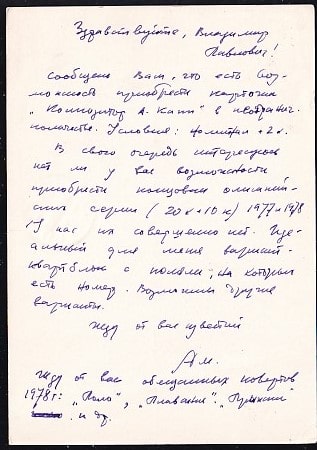 Здравствуйте, Владимир
Павлович!
Сообщаю Вам, что есть воз-
можность приобрести карточки
"Композитор А. Кати" в неогранич.
количестве. Условия: Номинал + 2 к.
В свою очередь интересуюсь
нет ли у вас возможности
приобрести концовки олимпий-
ских серии (20к+10к) 1977 и 1978
У нас их совершенно нет. Иде-
альный для меня вариант-
квартблок с полями, на которых
есть номер. Возможны другие
варианты.
Жду от вас известий
Жду от вас обещанных конвертов
1978 г: "Поло", "Плавание". "Прыжки"
и др.